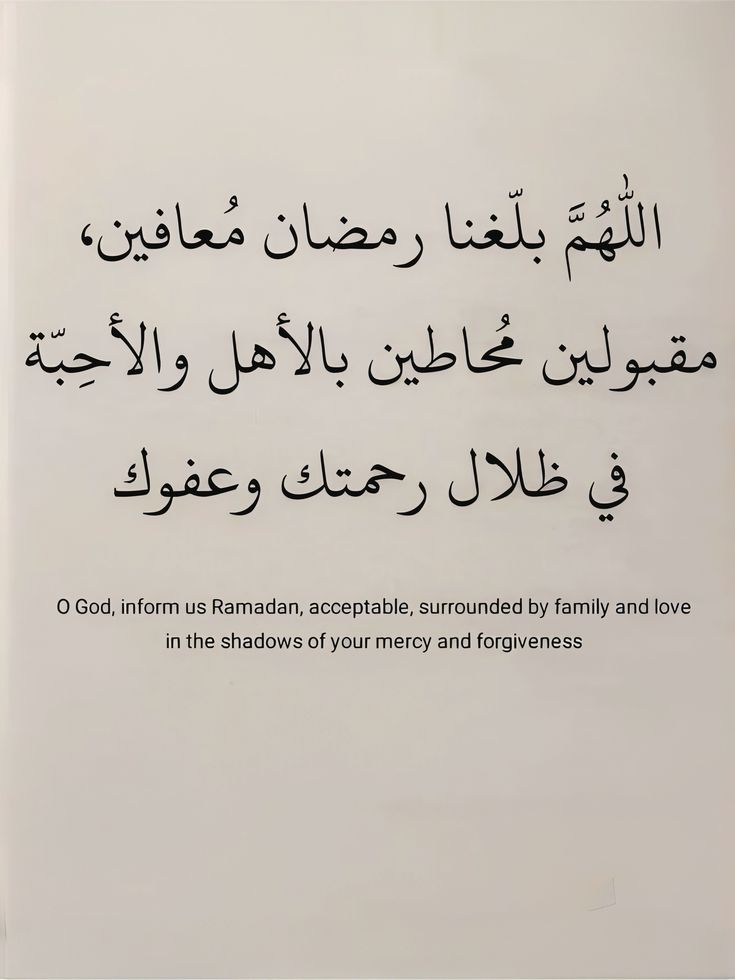 اللّٰهُمَّ بلّغنا رمضان مُعافين،
مقبولين مُحاطين بالأهل والأحِبّة
في ظلال رحمتك وعفوك
O God, inform us Ramadan, acceptable, surrounded by family and love
in the shadows of your mercy and forgiveness